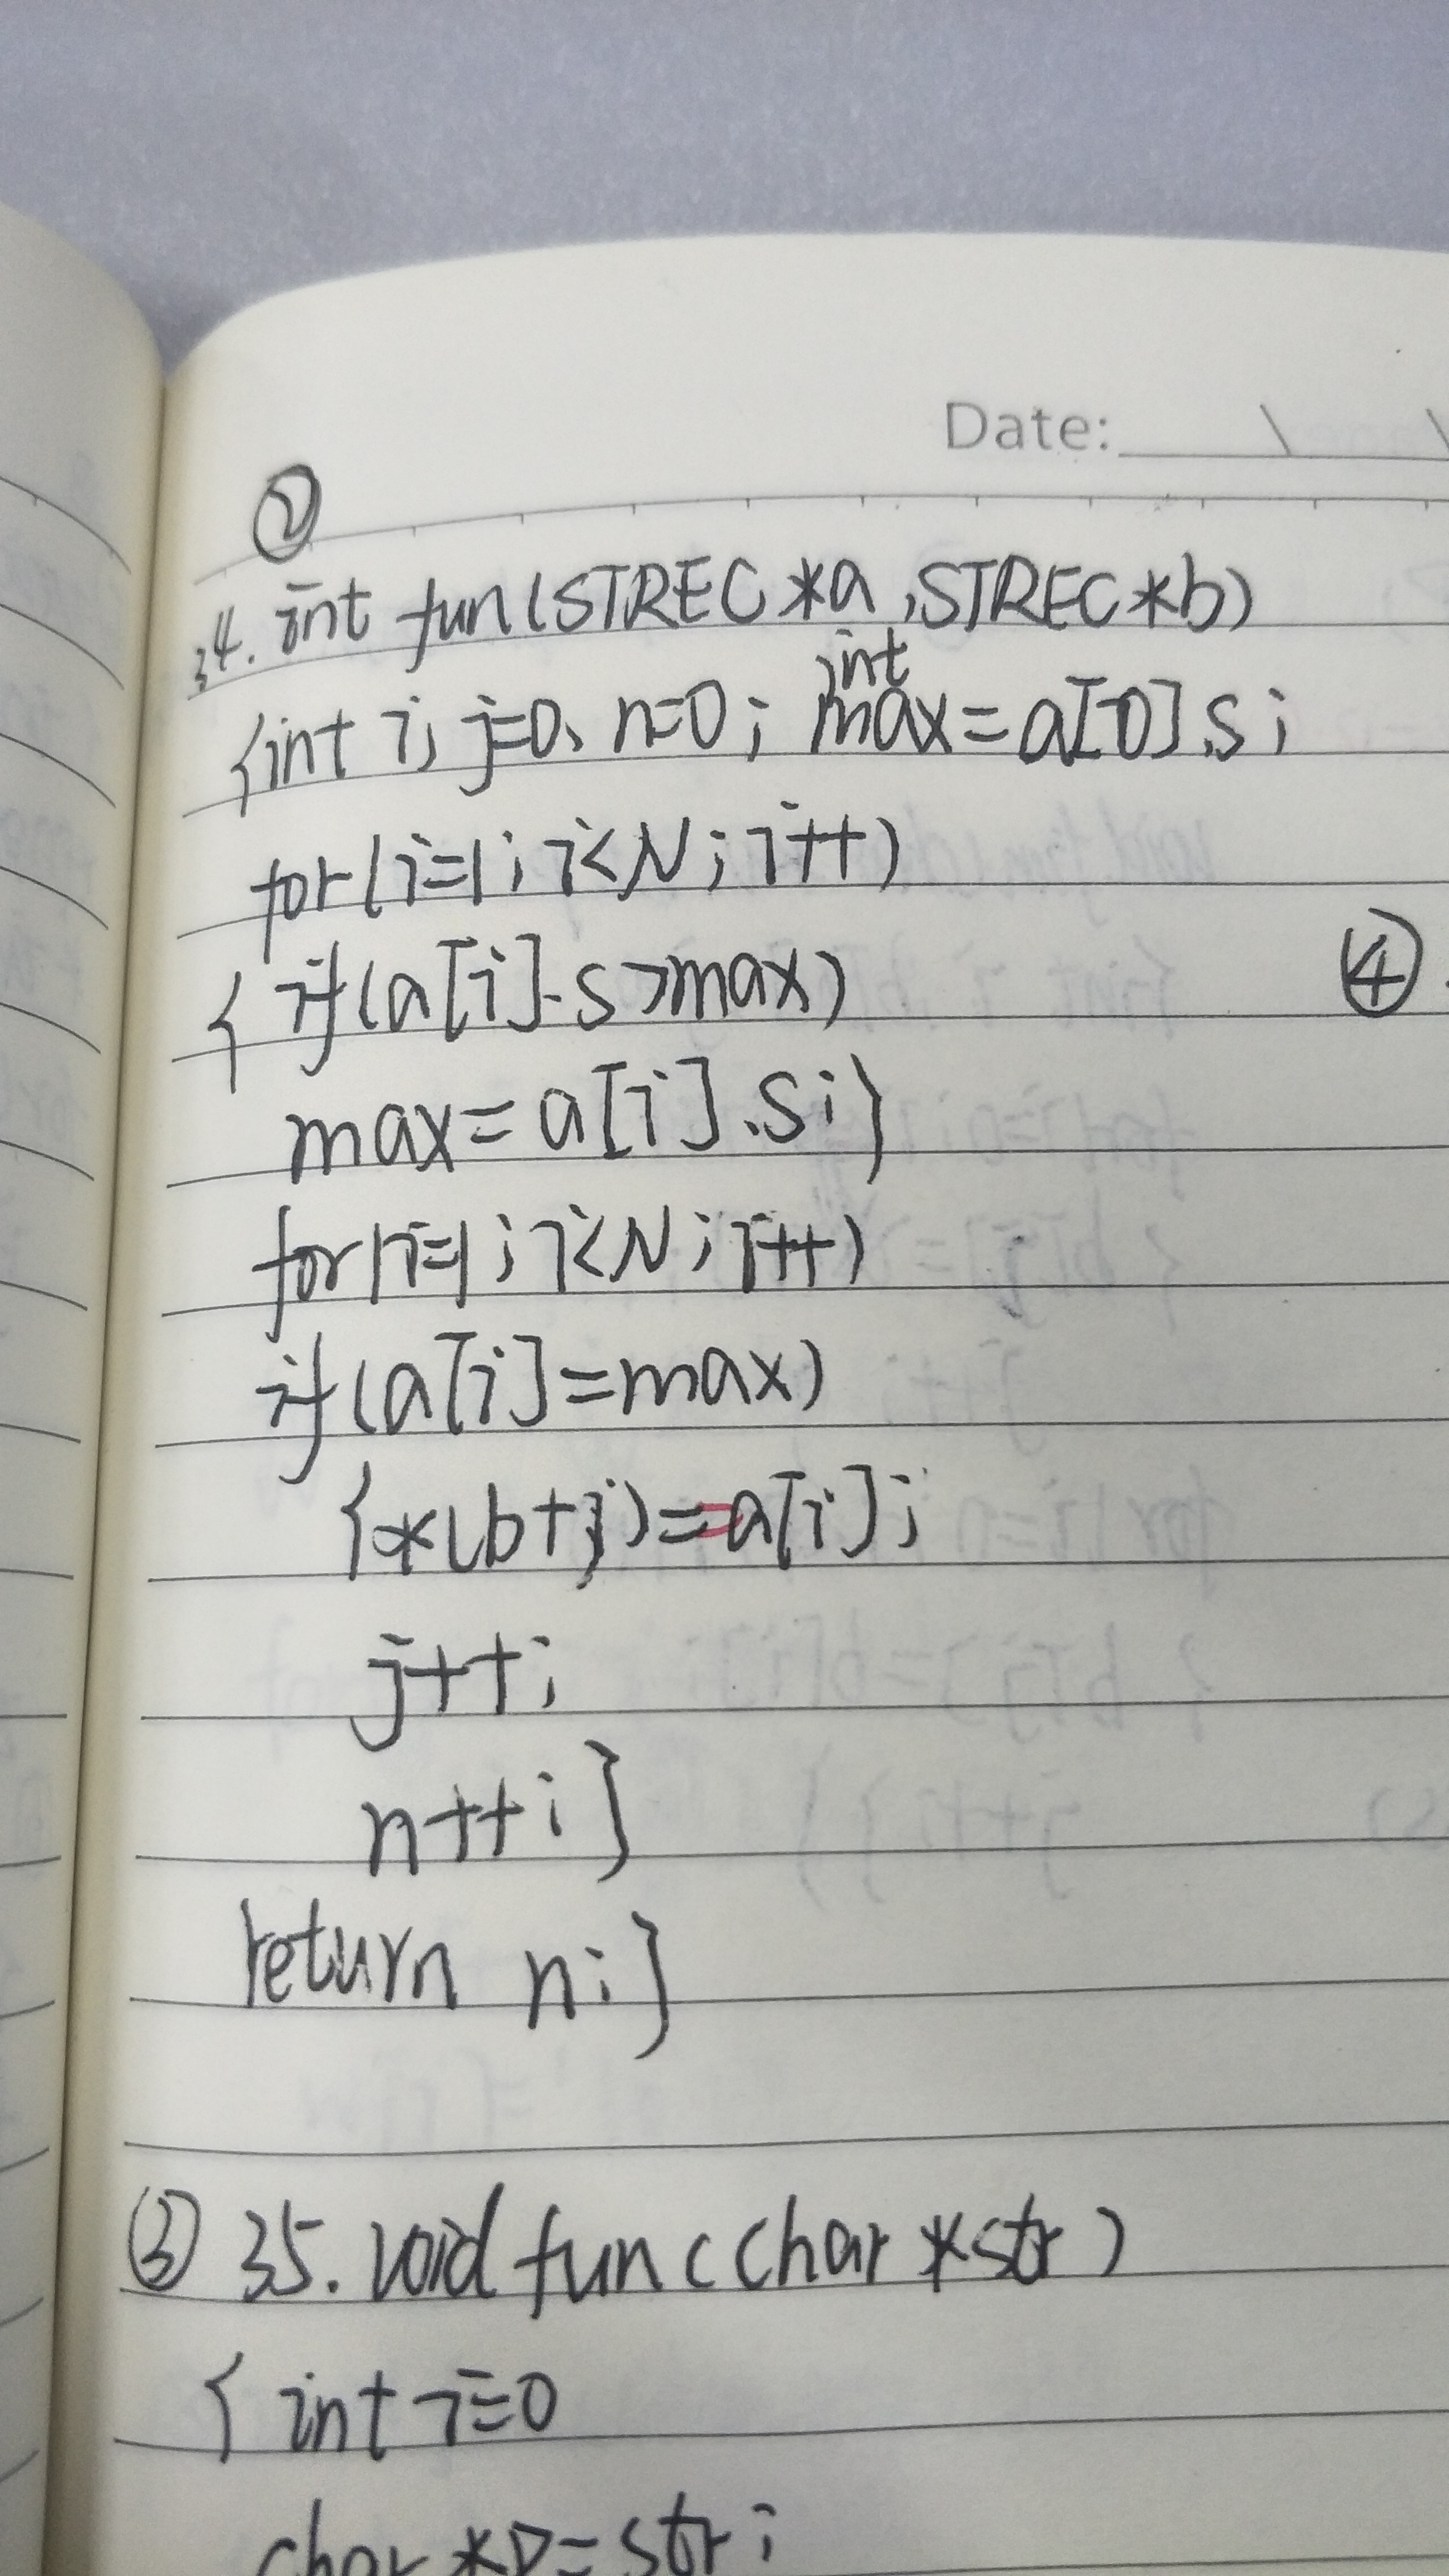 Date:
②
34. int fun(STREC *a, STREC *b)
int
{int i, j=0, n=0; max=a[0].s;
for(i=1; i<N; i++)
{ if(a[i].s>max)
④
max=a[i].s;}
for(i=1; i<N; i++)
if(a[i]=max)
{*(b+j)=a[i];
j++;
n++;}
return n;}
③ 35. void fun(char *str)
{ int i=0
char *p=str;